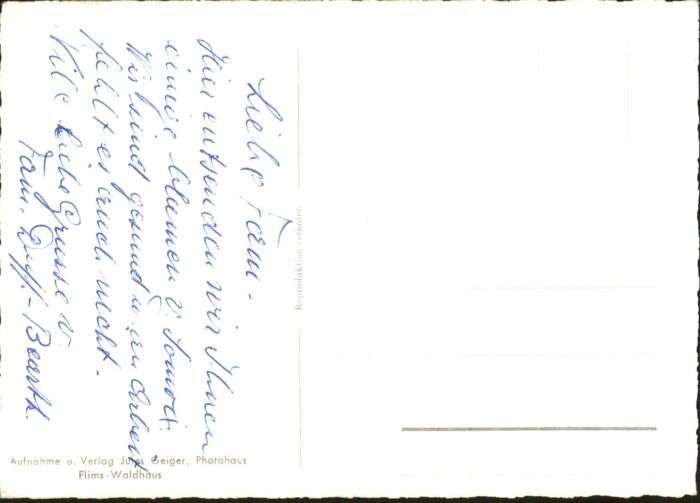 Liebe Fam.
Hier entsenden wir Ihnen
einige Blumen v.
Wir sind gesund u. an Arbeit
fehlt es auch nicht.
Vile Liebe Grüsse v.
Fam.
Reproduktion verboten
Aufnahme u. Verlag Jules Geiger, Photohaus
Flims-Waldhaus